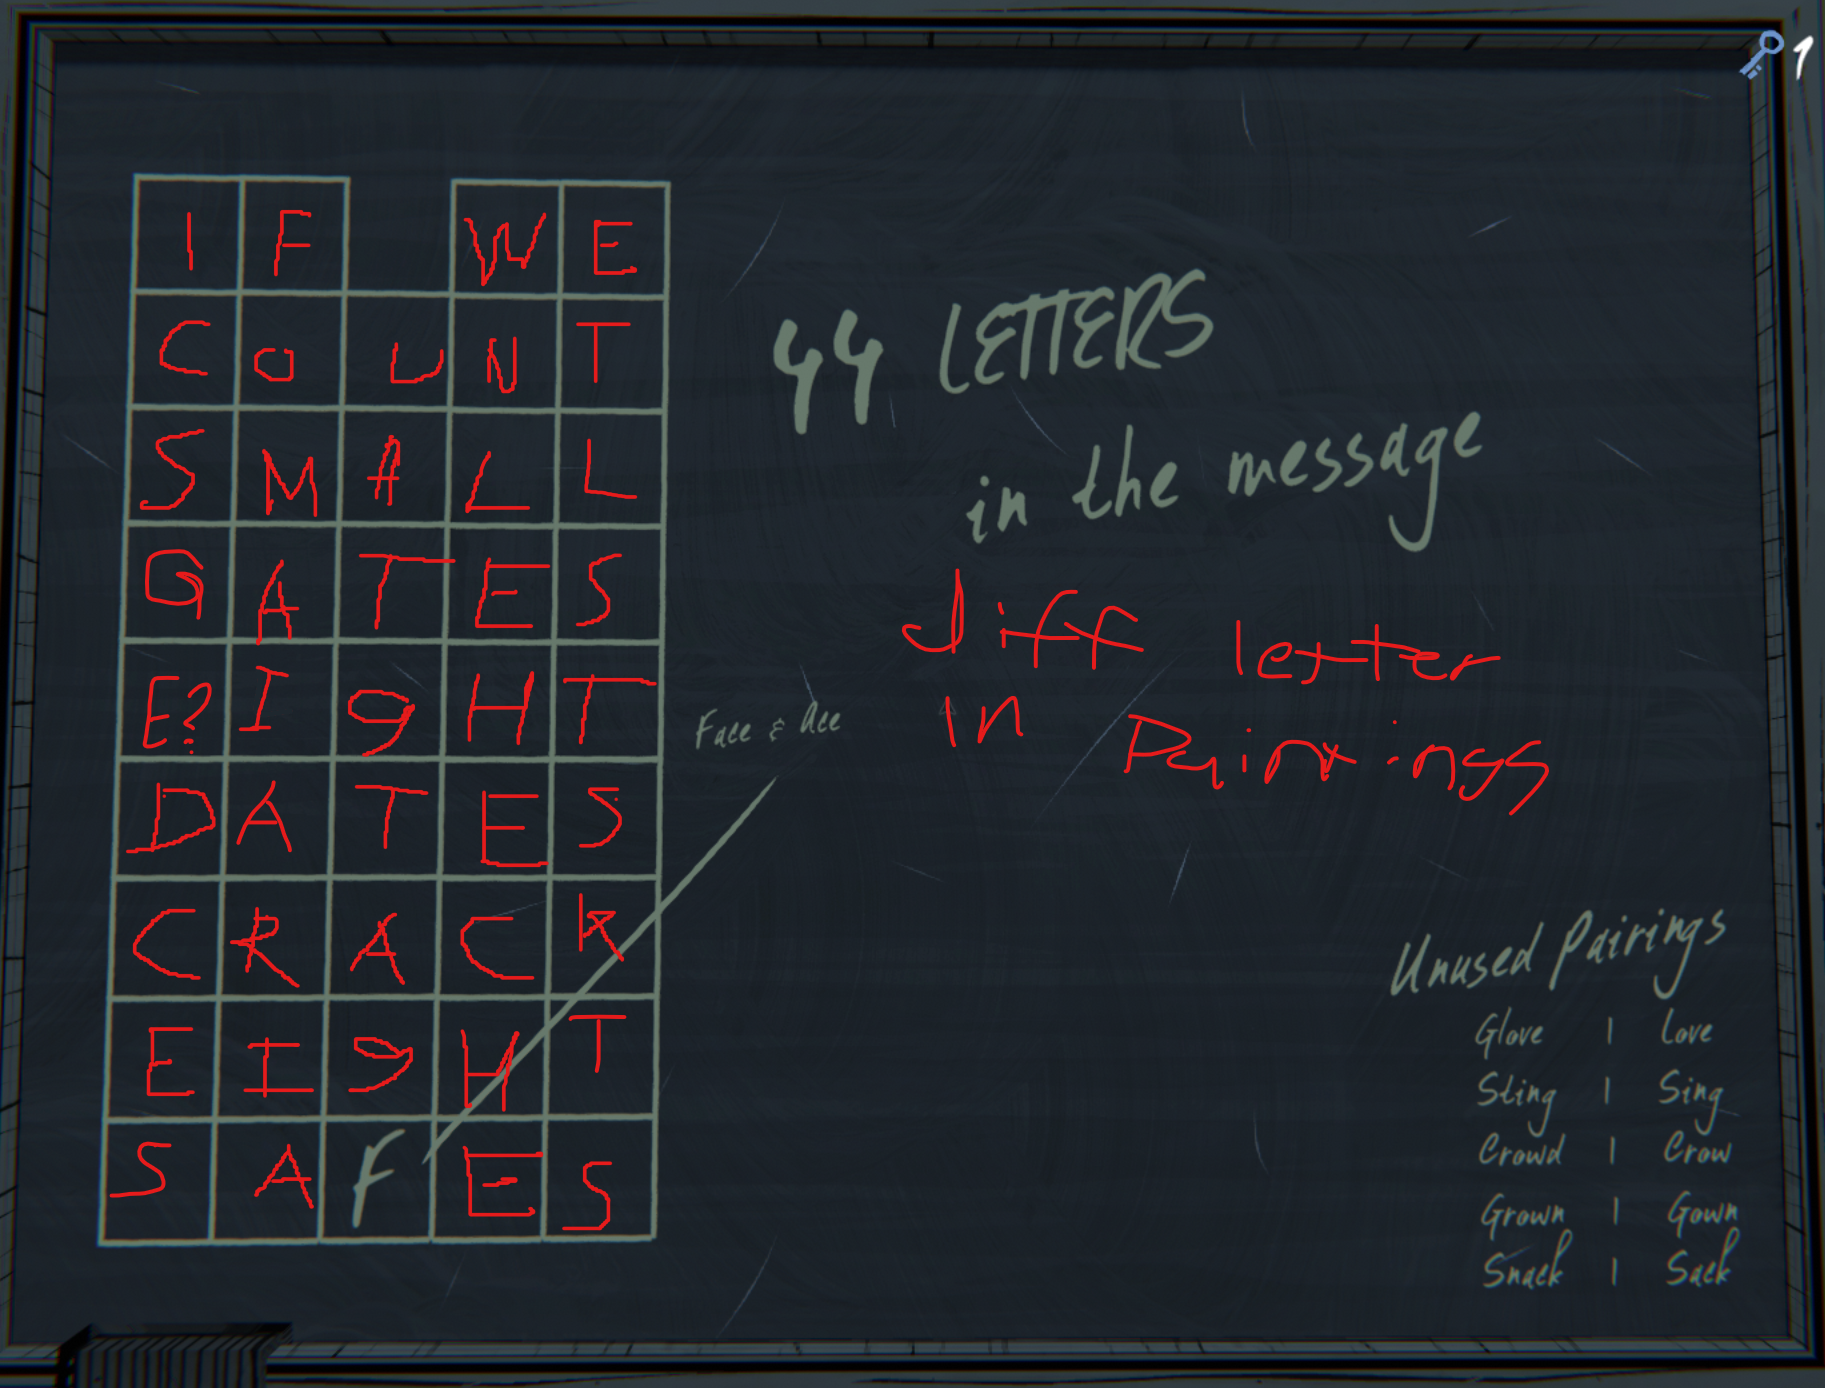 1
IF WE
COUNT
SMALL
GATES
E?IgHT
DATES
CRACK
EIgHT
SAFES
44 LETTERS
in the message
diff letter
in Pairings
Face & Ace
Unused Pairings
Glove | Love
Sting | Sing
Crowd | Crow
Grown | Gown
Snack | Sack